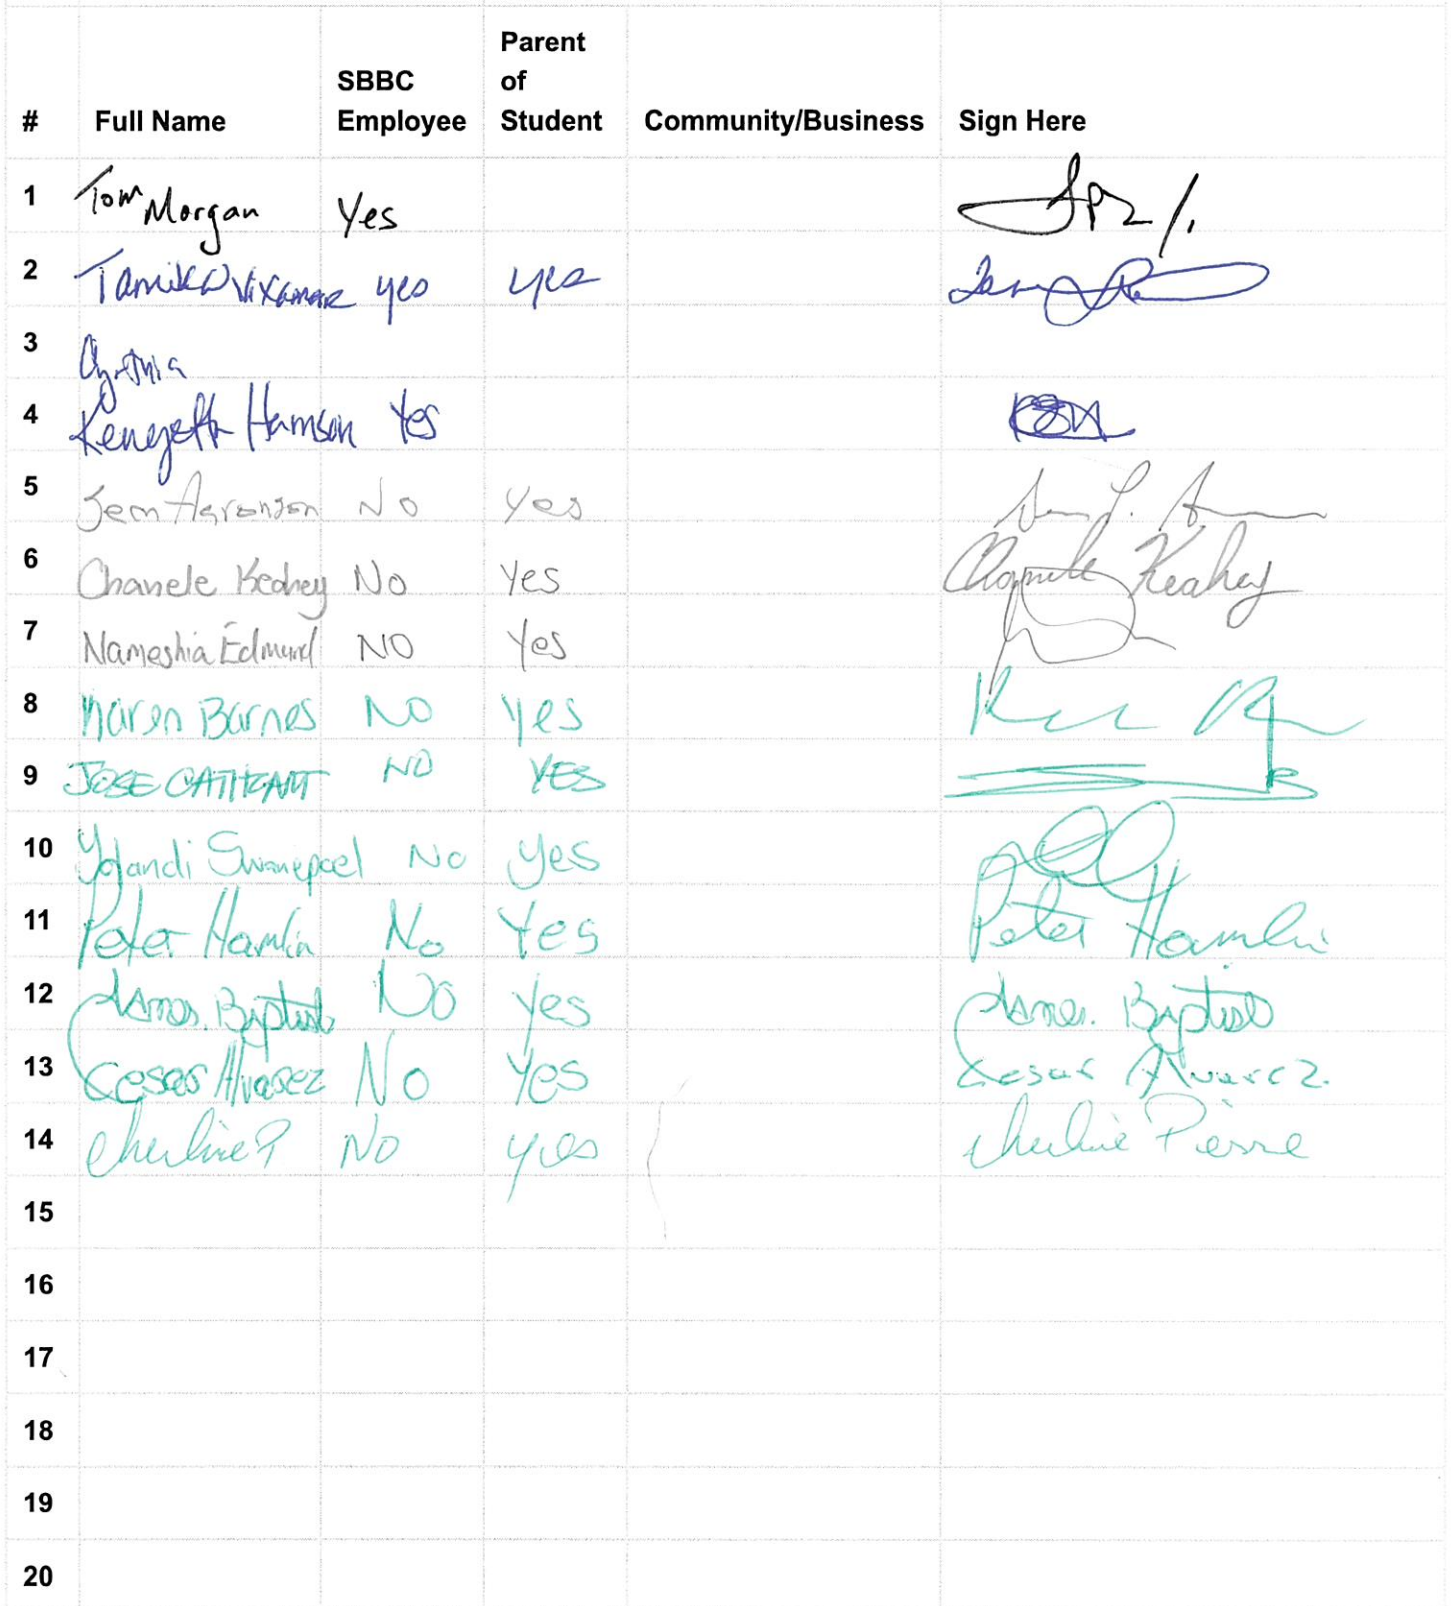 # Full Name SBBC Employee Parent of Student Community/Business Sign Here
1 Tom Morgan Yes
2 Tamika Vixamar yes yes
3 Cynthia
4 Kenyetta Hamson Yes
5 Sem Aaronson No Yes
6 Chanele Keahey No Yes Chanele Keahey
7 Nameshia Edmund NO Yes
8 Karen Barnes NO Yes
9 JOSE CATHCART NO YES
10 Yolandi Swanepoel No Yes
11 Peter Hamlin No Yes Peter Hamlin
12 Baptiste No Yes Baptiste
13 Cesar Alvarez No Yes Cesar Alvarez.
14 Cherline P NO yes Cherline Pierre
15
16
17
18
19
20